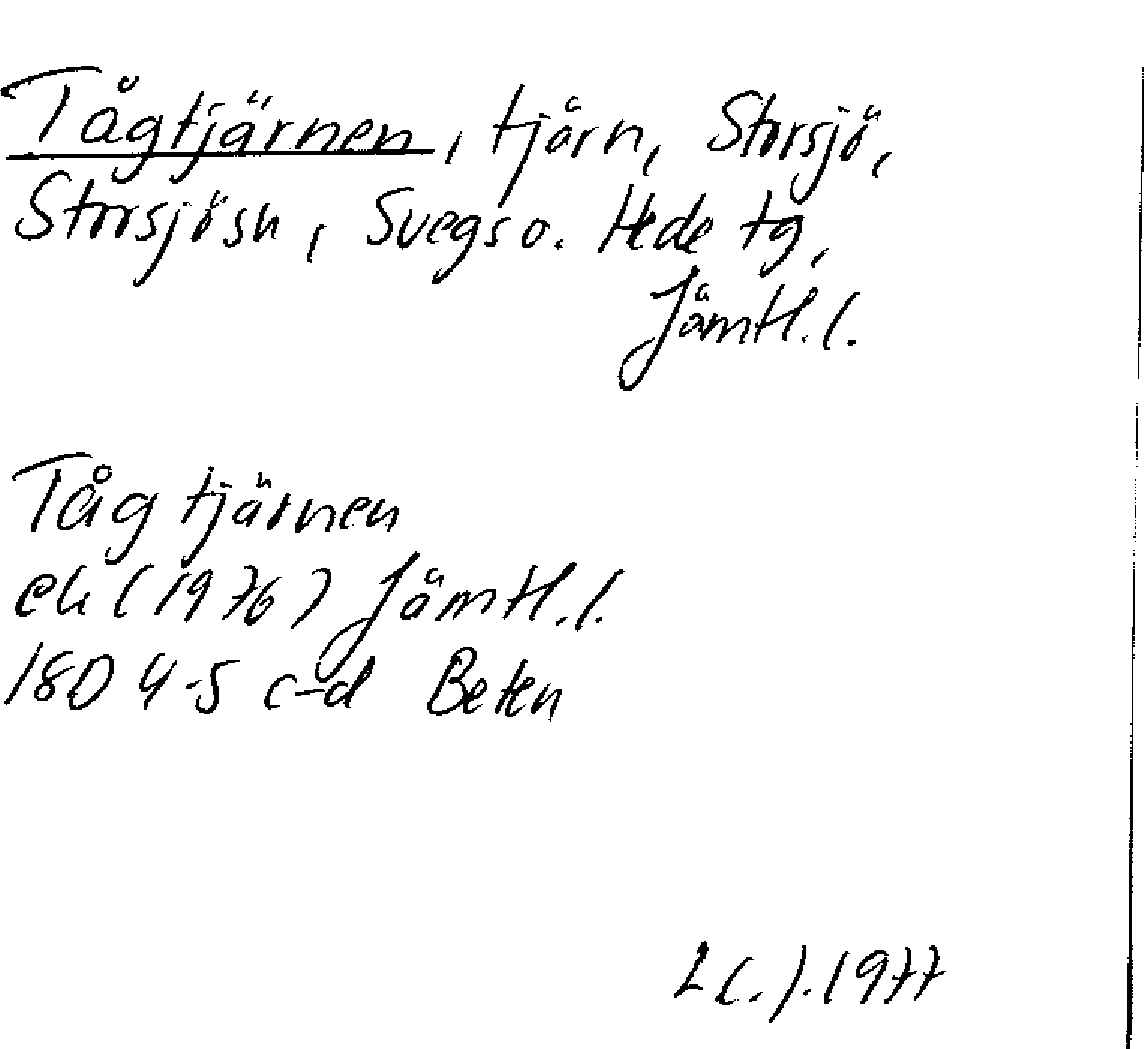 Tågtjärnen, tjärn, Storsjö,
Storsjö sn, Svegs o. Hede tg,
Jämtl. l.
Tåg tjärnen
ek (1976) Jämtl. l.
18D 4-5 c-d Beten
1977